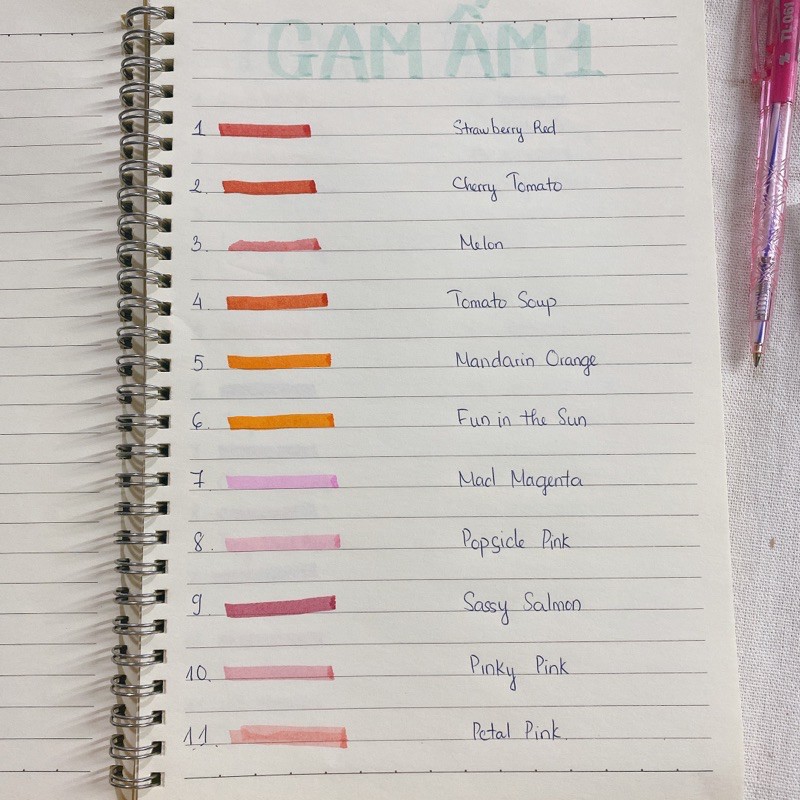 GAM ẤM 1
1 Strawberry Red
2. Cherry Tomato
3. Melon
4. Tomato Soup
5. Mandarin Orange
6. Fun in the Sun
7 Mad Magenta
8. Popsicle Pink
9 Sassy Salmon
10. Pinky Pink
11. Petal Pink.
TL-061